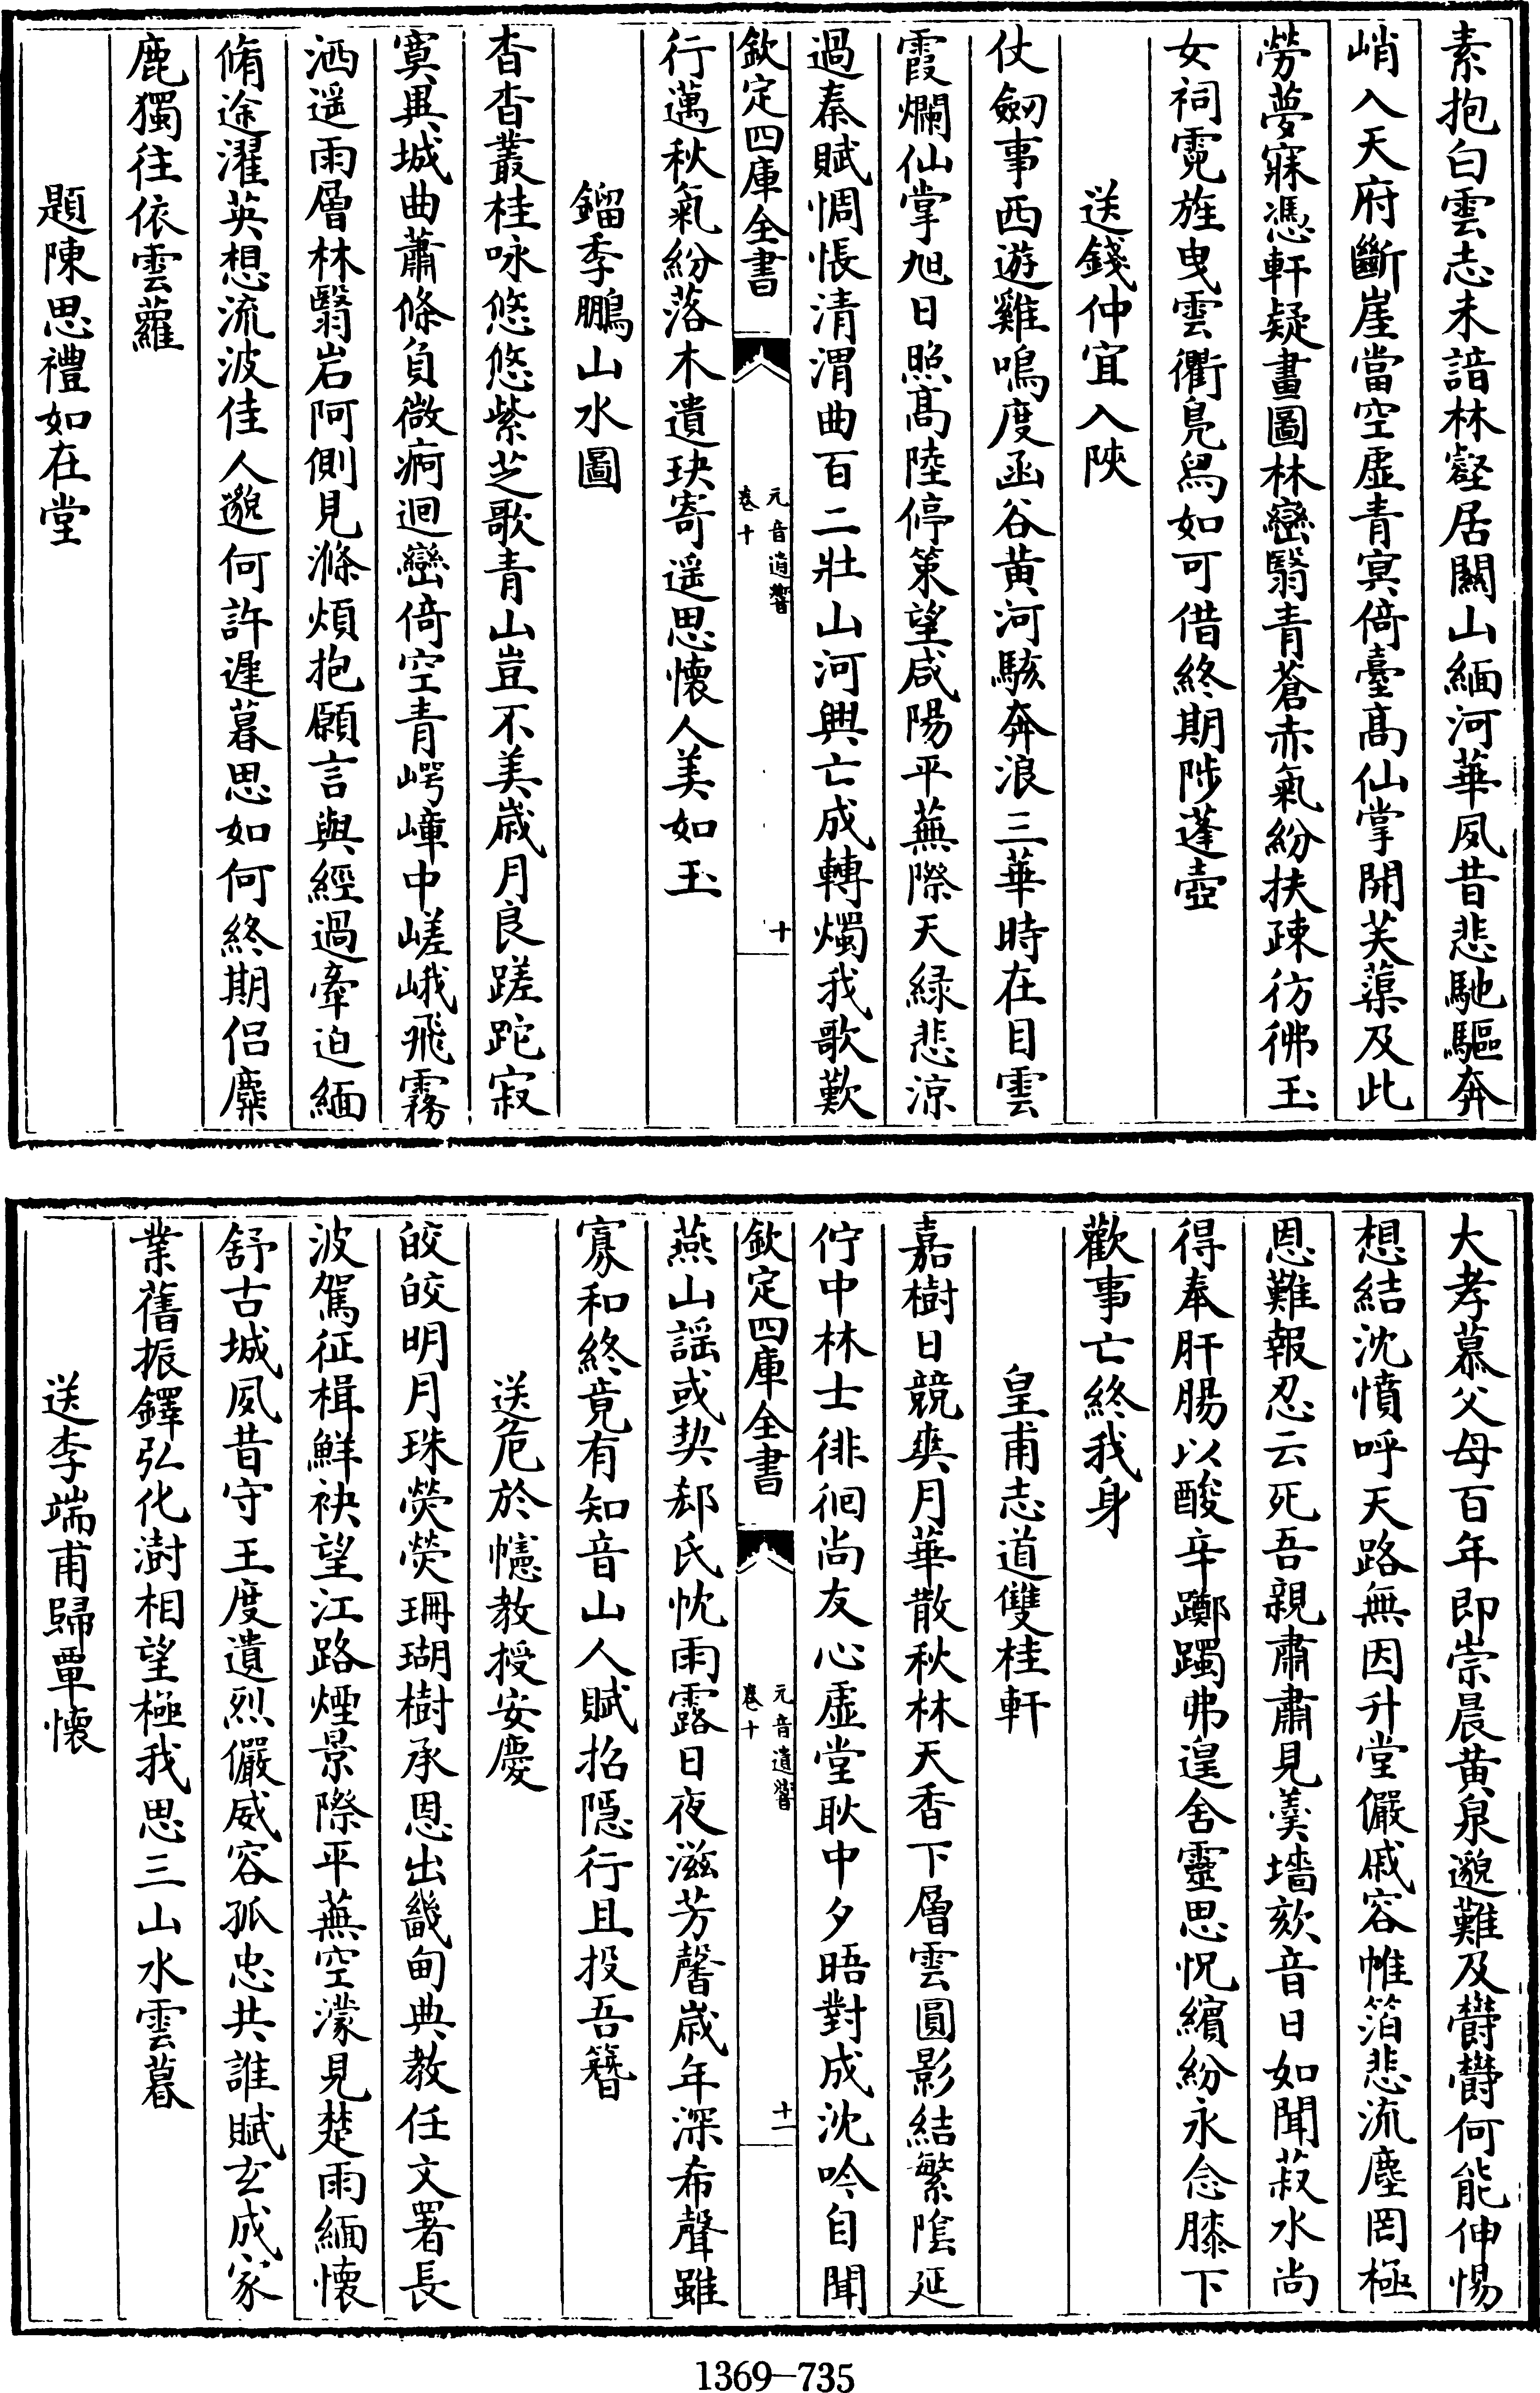 素抱白雲志未諳林壑居關山緬河華夙昔悲馳驅奔
峭入天府斷崖當空虛青冥倚臺髙仙掌開芙蕖及此
勞夢寐憑軒疑畫圖林巒翳青蒼赤氣紛扶疎彷彿玉
女祠霓旌曳雲衢鳧舄如可借終期陟蓬壺
送錢仲宜入陜
仗劒事西遊雞鳴度函谷黄河駭奔浪三華時在目雲
霞爛仙掌旭日照髙陸停策望咸陽平蕪際天緑悲涼
過秦賦惆悵清渭曲百二壯山河興亡成轉燭我歌歎
欽定四庫全書
元音遺響
卷十
十
行邁秋氣紛落木遺玦寄遥思懷人美如玉
鎦季鵬山水圖
杳杳叢桂咏悠悠紫芝歌青山豈不美歲月良蹉跎寂
寞異城曲蕭條負微痾迴巒倚空青崿嶂中嵯峨飛霧
洒遥雨層林翳岩阿側見滌煩抱願言與經過牽迫緬
脩途濯英想流波佳人邈何許遲暮思如何終期侣麋
鹿獨往依雲蘿
題陳思禮如在堂
大孝慕父母百年即崇晨黄泉邈難及欝欝何能伸惕
想結沈憤呼天路無因升堂儼戚容帷箔悲流塵罔極
恩難報忍云死吾親肅肅見羹墻欬音日如聞菽水尚
得奉肝腸以酸辛躑躅弗遑舍靈思怳繽紛永念膝下
歡事亡終我身
皇甫志道雙桂軒
嘉樹日競爽月華散秋林天香下層雲圓影結繁隂延
佇中林士徘徊尚友心虛堂耿中夕晤對成沈吟自聞
欽定四庫全書
元音遺響
卷十
十一
燕山謡或契郄氏忱雨露日夜滋芳馨歲年深希聲雖
寡和終竟有知音山人賦招隠行且投吾簪
送危於幰教授安慶
皎皎明月珠熒熒珊瑚樹承恩出畿甸典教任文署長
波駕征楫鮮袂望江路煙景際平蕪空濛見楚雨緬懷
舒古城夙昔守王度遺烈儼威容孤忠共誰賦玄成家
業舊振鐸弘化澍相望極我思三山水雲暮
送李端甫歸覃懷
1369—735